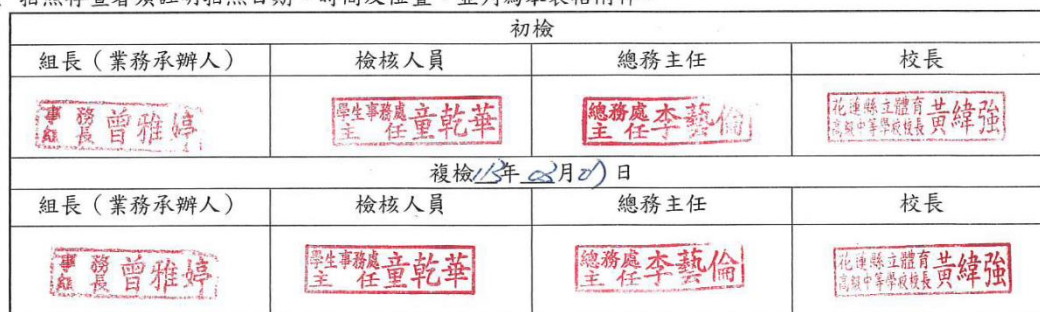 初檢
組長（業務承辦人） 檢核人員 總務主任 校長
事務組長 曾雅婷 學生事務處主任 童乾華 總務處主任 李藝倫 花蓮縣立體育高級中等學校校長 黃緯強
複檢113年 03月01日
組長（業務承辦人） 檢核人員 總務主任 校長
事務組長 曾雅婷 學生事務處主任 童乾華 總務處主任 李藝倫 花蓮縣立體育高級中等學校校長 黃緯強